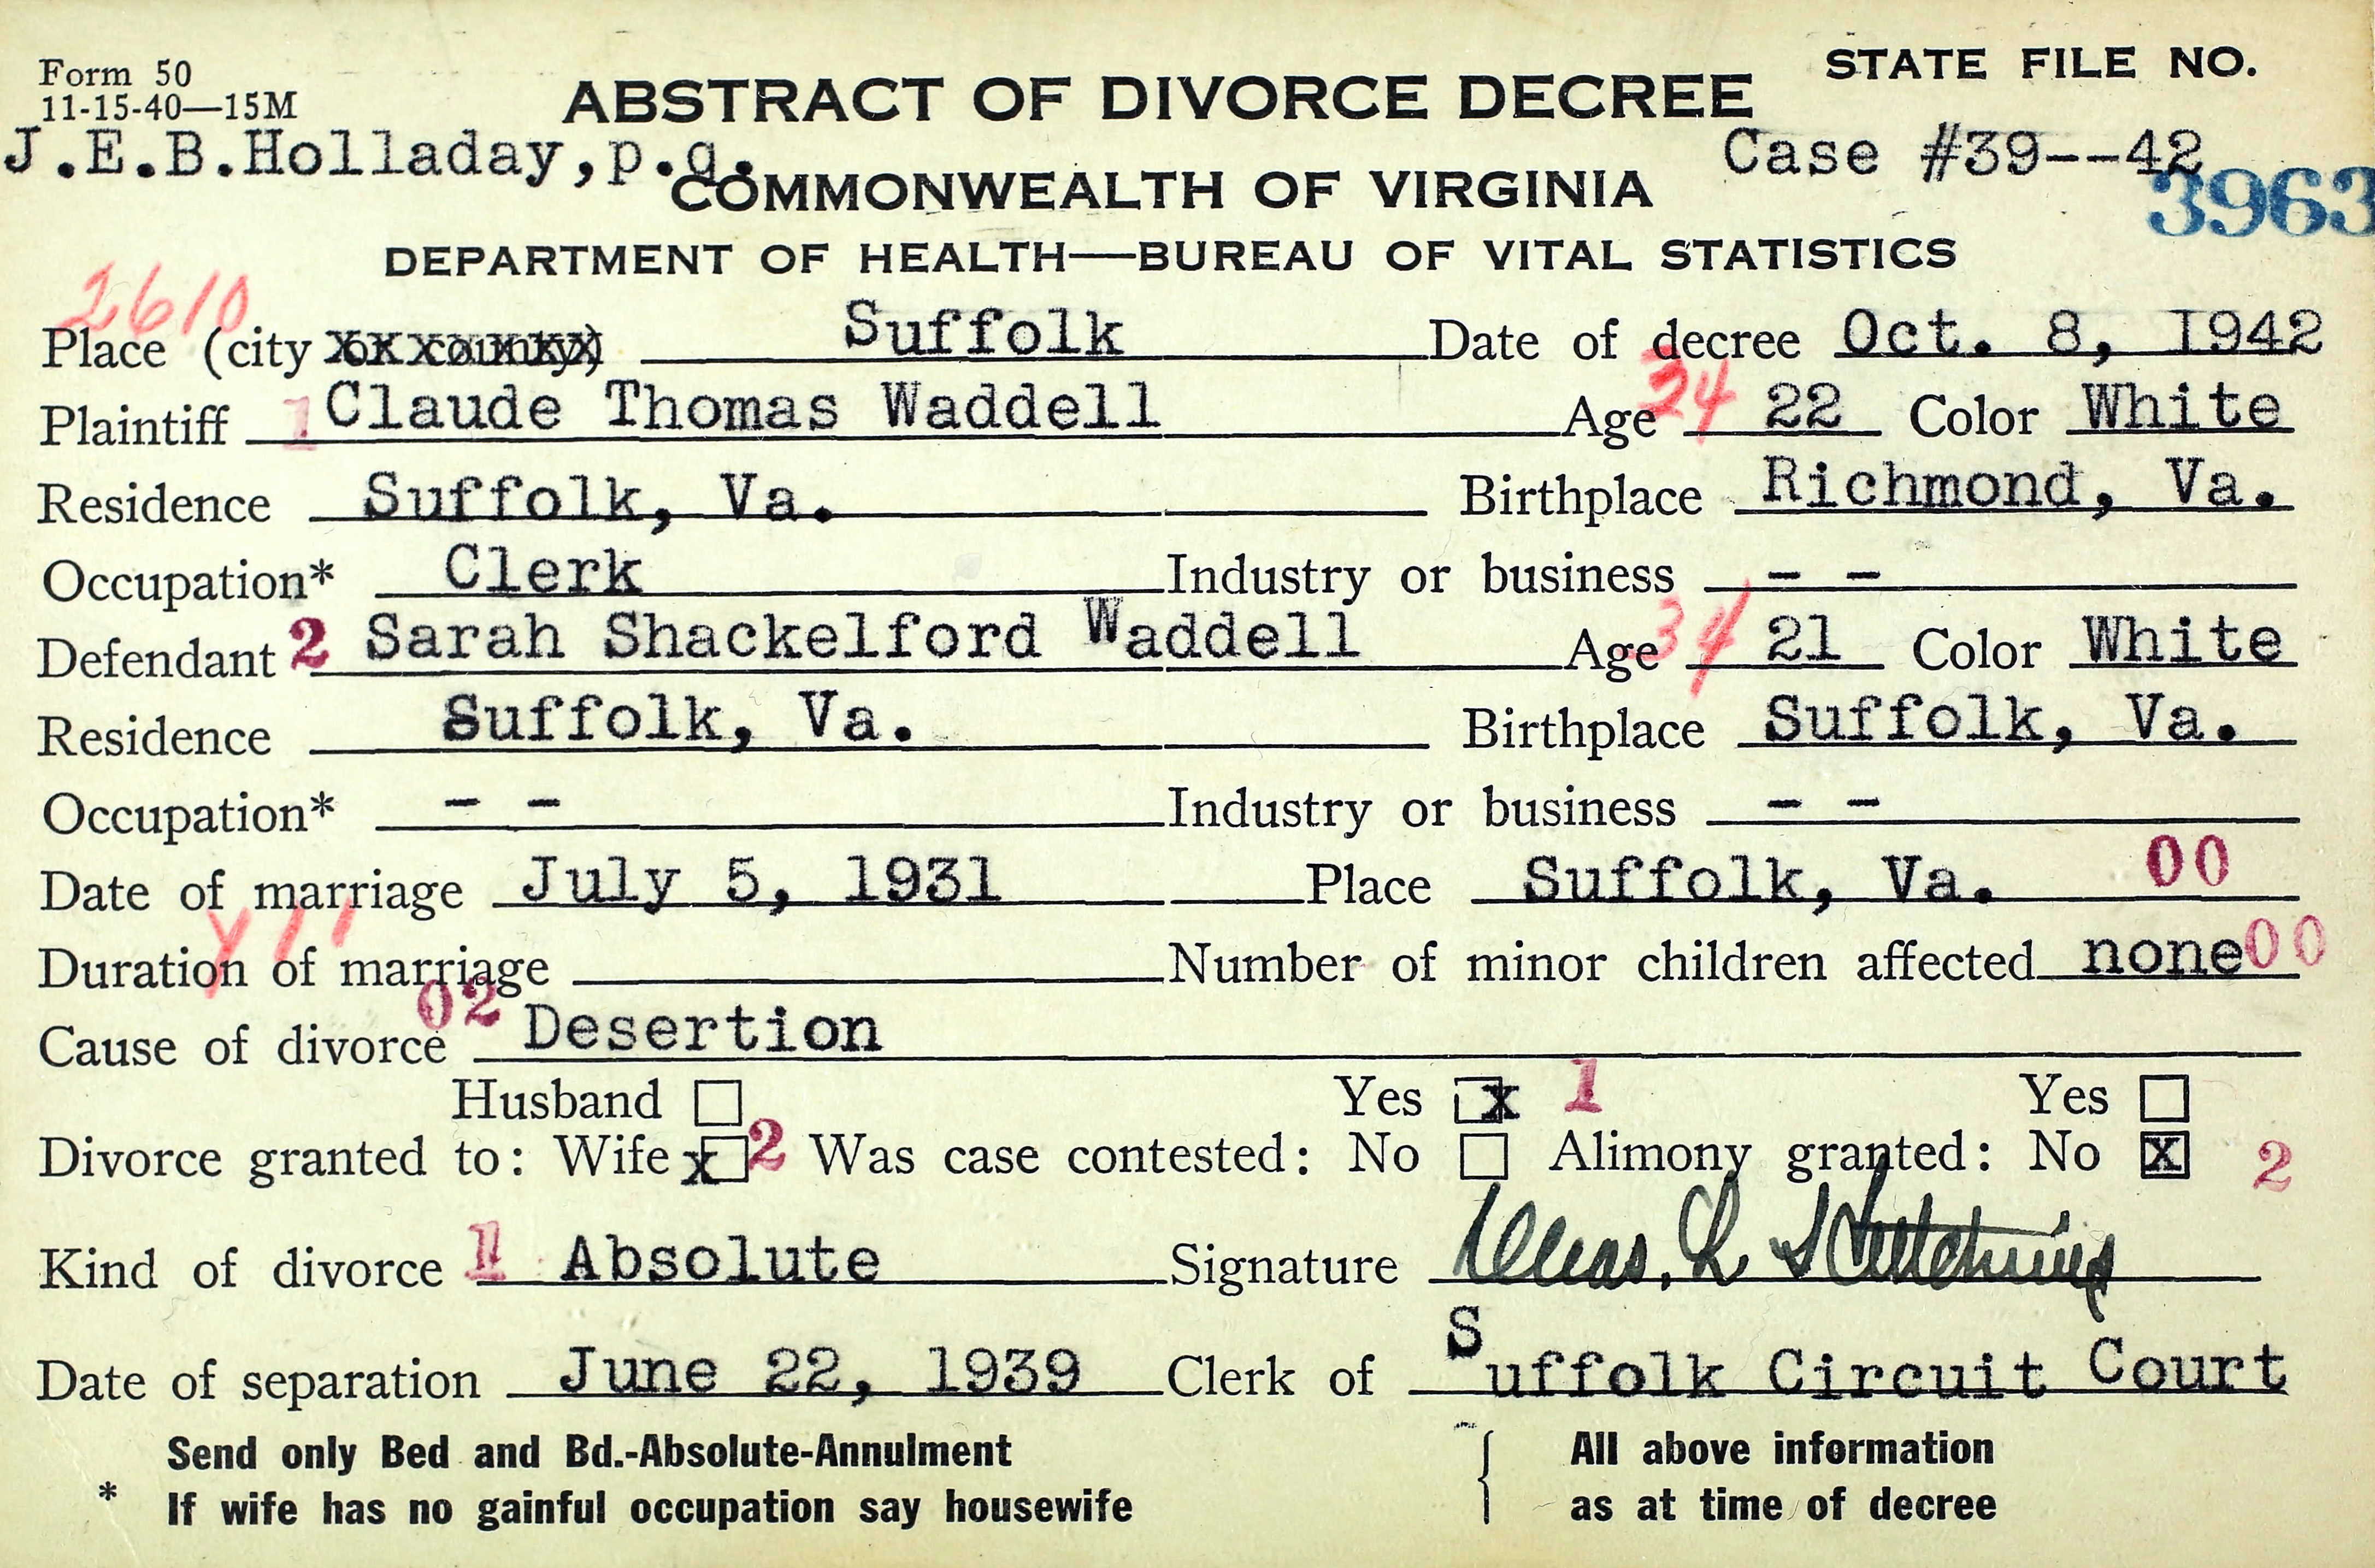 Form 50
11-15-40—15M
STATE FILE NO.
ABSTRACT OF DIVORCE DECREE
J.E.B.Holladay,p.q.
Case #39--42
COMMONWEALTH OF VIRGINIA
3963
DEPARTMENT OF HEALTH—BUREAU OF VITAL STATISTICS
2610
Place (city or county) Suffolk Date of decree Oct. 8, 1942
Plaintiff 1 Claude Thomas Waddell Age 34 22 Color White
Residence Suffolk, Va. Birthplace Richmond, Va.
Occupation* Clerk Industry or business - -
Defendant 2 Sarah Shackelford Waddell Age 34 21 Color White
Residence Suffolk, Va. Birthplace Suffolk, Va.
Occupation* - - Industry or business - -
Date of marriage July 5, 1931 Place Suffolk, Va. 00
Duration of marriage Y11 Number of minor children affected none 00
Cause of divorce 02 Desertion
Husband Yes x 1 Yes
Divorce granted to: Wife x 2 Was case contested: No Alimony granted: No X 2
Kind of divorce 1 Absolute Signature
Date of separation June 22, 1939 Clerk of Suffolk Circuit Court
Send only Bed and Bd.-Absolute-Annulment { All above information
* If wife has no gainful occupation say housewife as at time of decree